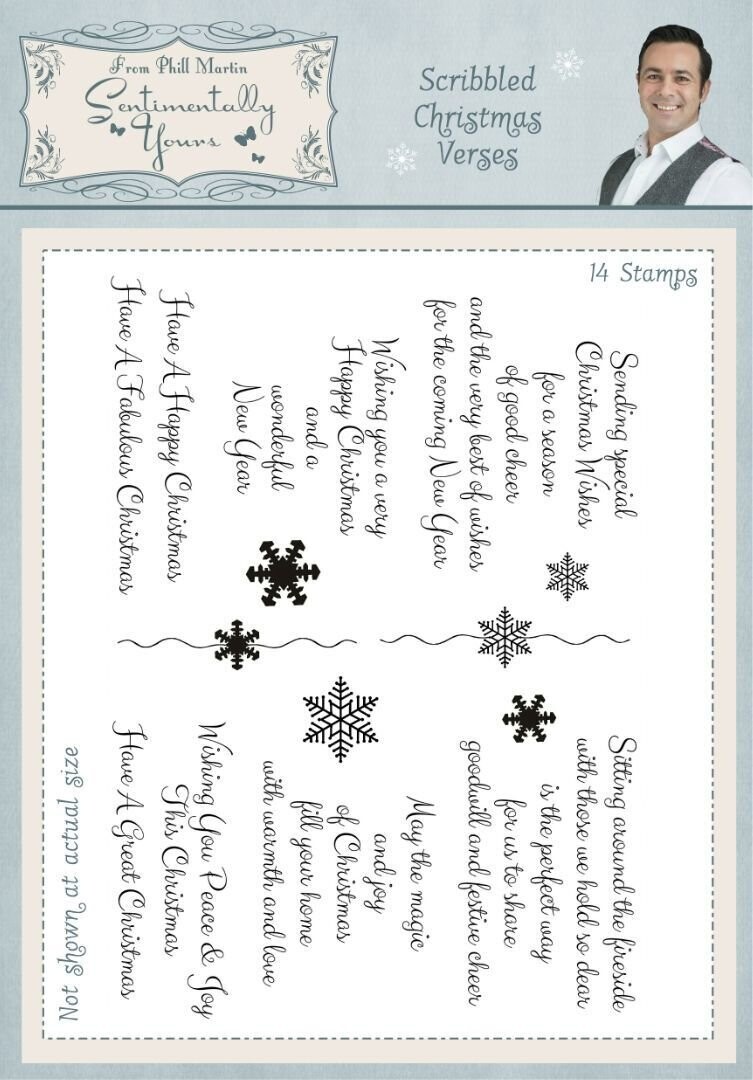 From Phill Martin
Sentimentally
Yours
Scribbled
Christmas
Verses
14 Stamps
Sending special
Christmas Wishes
for a season
of good cheer
and the very best of wishes
for the coming New Year
Wishing you a very
Happy Christmas
and a
wonderful
New Year
Have A Happy Christmas
Have A Fabulous Christmas
Sitting around the fireside
with those we hold so dear
is the perfect way
for us to share
goodwill and festive cheer
May the magic
and joy
of Christmas
fill your home
with warmth and love
Wishing You Peace & Joy
This Christmas
Have A Great Christmas
Not shown at actual size